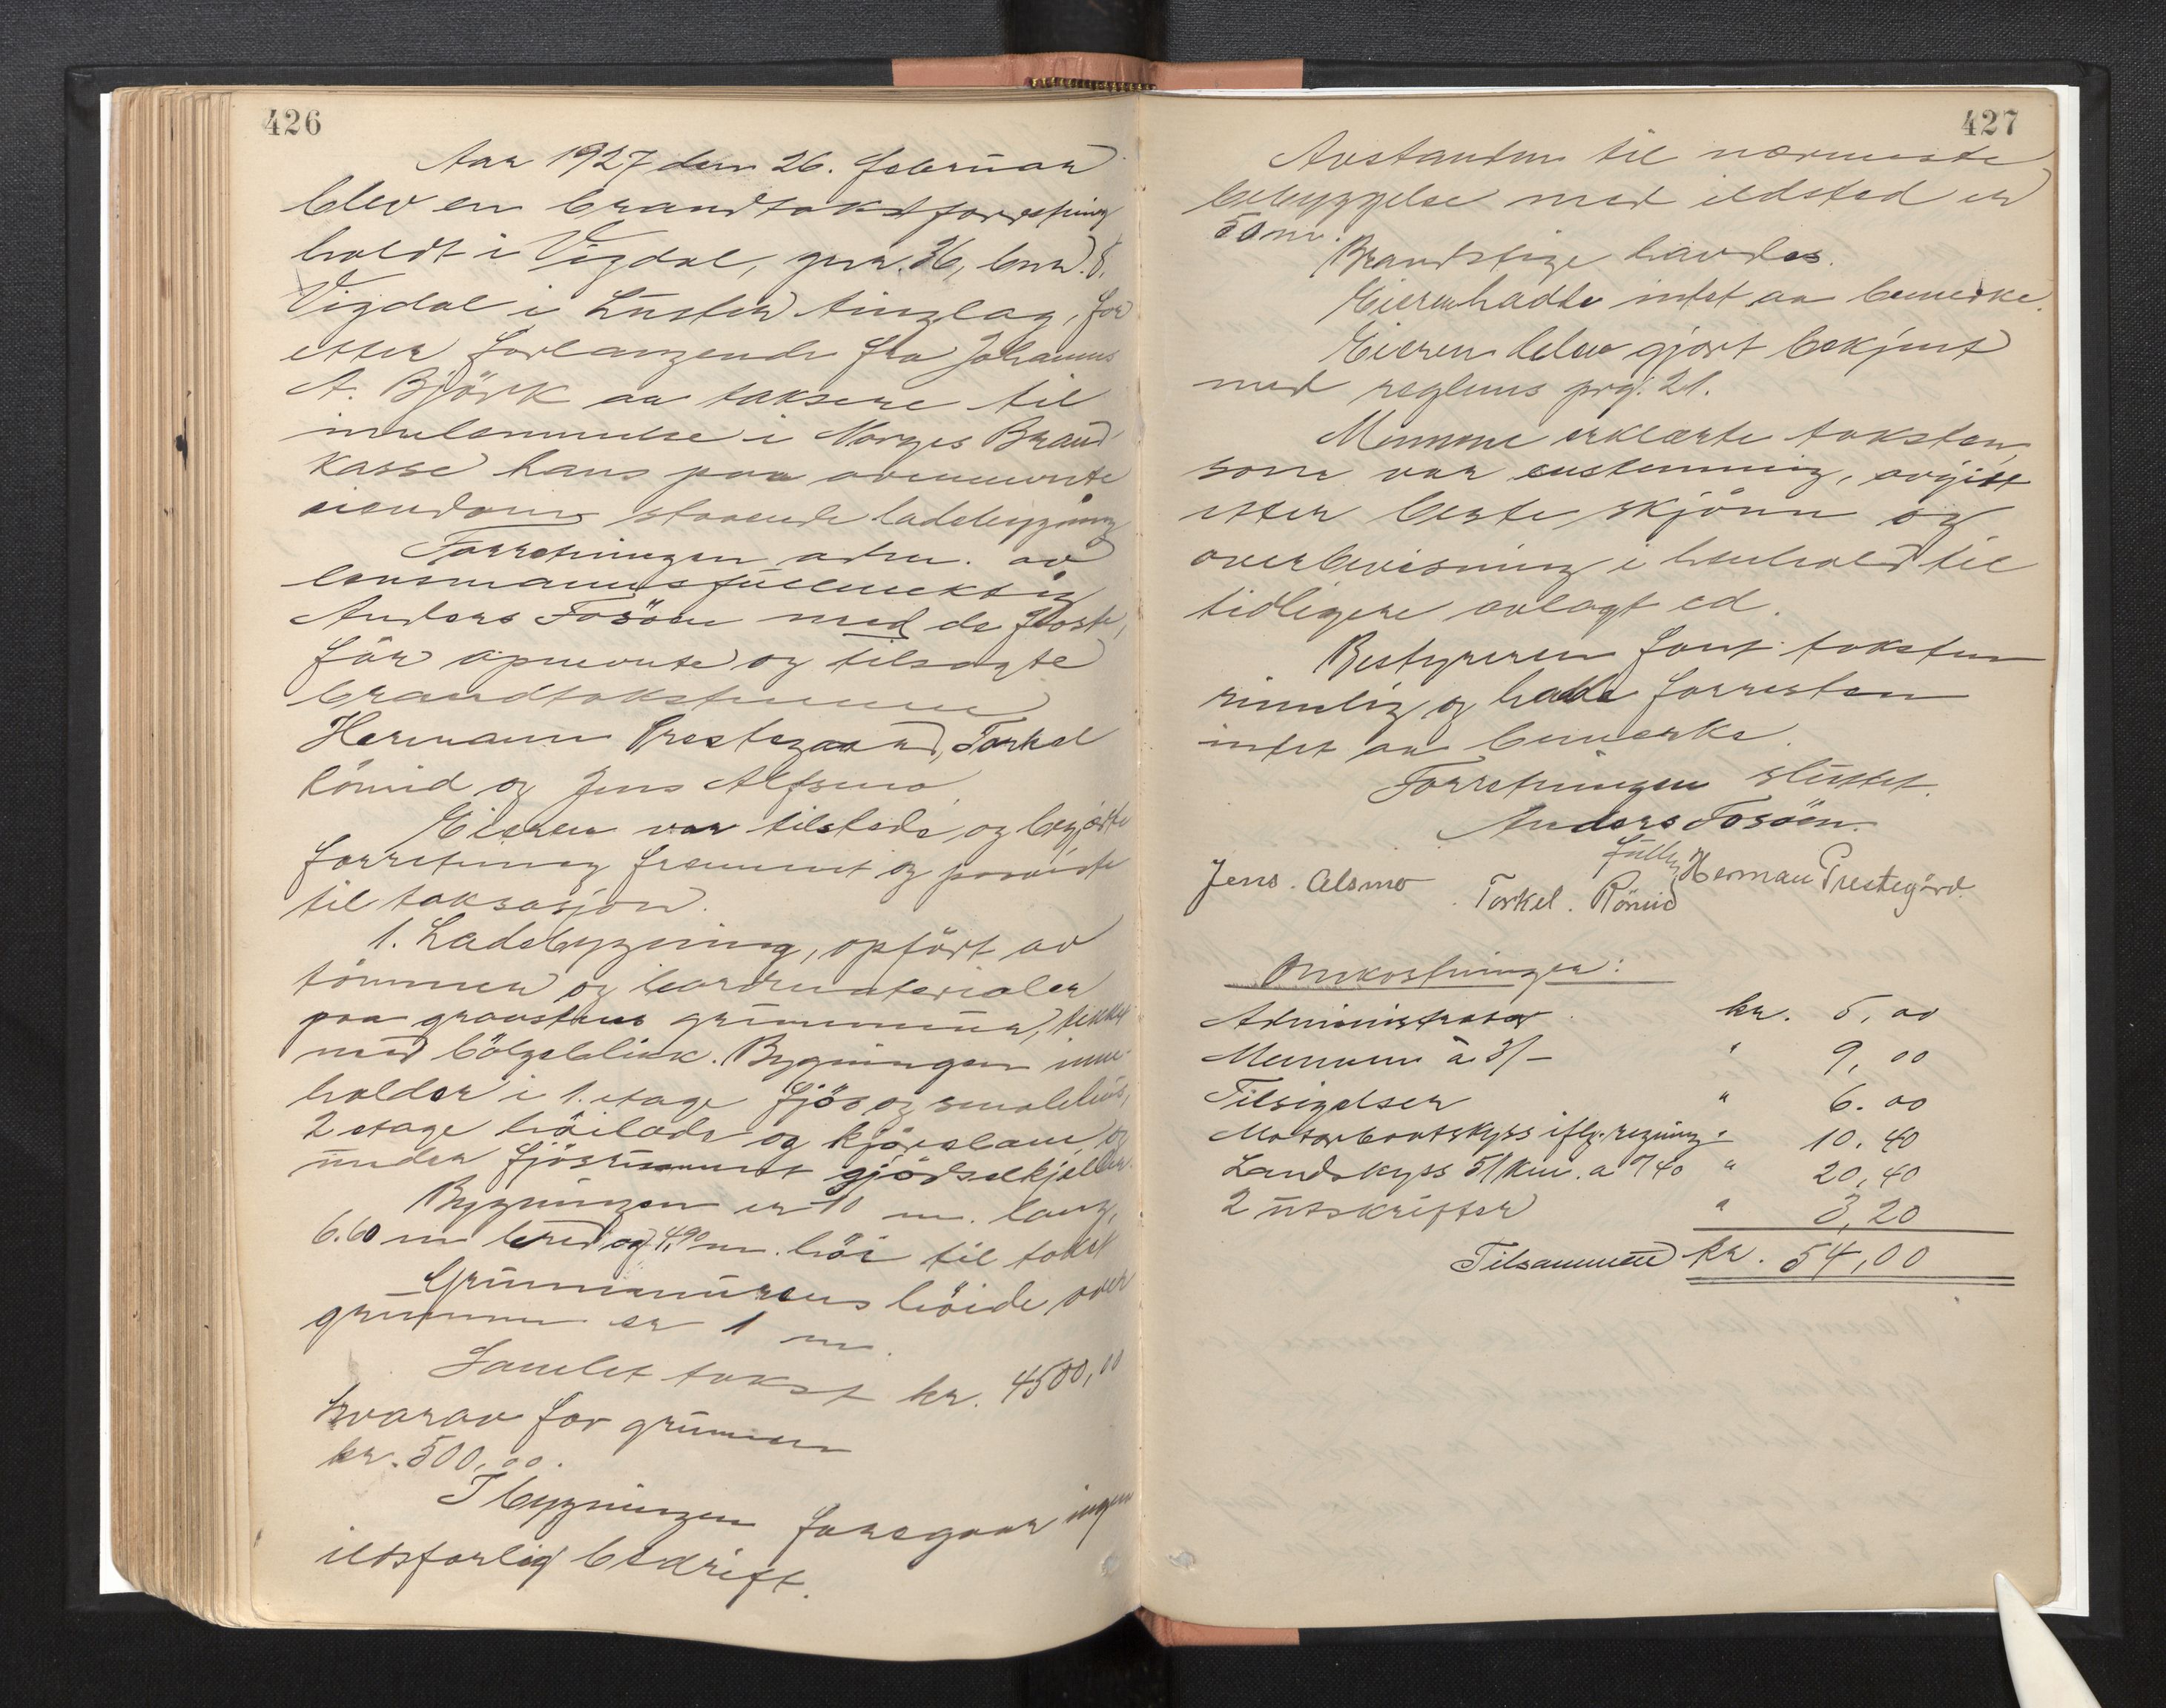 426
Aar 1927 den 26. februar
blev en brandtakstforretning
holdt i Vigdal, gnr. 36, bnr. 8.
Vigdal i Luster tinglag, for
etter forlangende fra Johannes
A. Björk aa taksere til
innlemmelse i Norges Brand-
kasse hans paa ovennevnte
eiendom staaende ladebygning
Forretningen adm. av
lensmannsfullmektig
Anders Fosöen med de
för opnevnte og tilsagte
brandtakstmenn
Hermann Prestegaard, Torkel
Römid og Jens Alsmo
Eieren var tilstede og begjærte
forretning fremmet og paaviste
til taksasjon.
1. Ladebygning, opfört av
tömmer og bordmaterialer
paa graastens grunnmur, tekket
med bölgeblikk. Bygningen inne-
holder i 1. etage fjös og smalehus,
2 etage höilade og kjörelaan, og
under fjösrummet gjödselkjeller.
Bygningen er 10 m. lang,
6.60 m bred og 4,90 m. höi til takst
Grunnmurens höide over
grunnen er 1 m.
Samlet takst kr. 4500,00
hvorav for grunnen
kr. 500,00.
I bygningen foregaar ingen
ildsfarlig bedrift.
427
Avstanden til nærmeste
bebyggelse med ildsted er
50 m.
Brandstige havdes.
Eieren hadde intet aa bemerke.
Eieren blev gjort bekjent
med reglenes prg. 21.
Mennene erklærte taksten,
som var enstemmig, avgitt
etter beste skjönn og
overbevisning i henhold til
tidligere avlagt ed.
Bestyreren fant taksten
rimelig og hadde forresten
intet aa bemerke.
Forretningen sluttet.
Anders Fosöen.
fullm.
Jens. Alsmo Torkel. Römid Herman Prestegård.
Omkostninger:
Administrator kr. 5,00
Mennene à 3/- " 9,00
Tilsigelser " 6.00
Motorbaatskyss iflg. regning " 10.40
Landskyss 51 km. a 0/40 " 20,40
2 utskrifter " 3,20
Tilsammen kr. 54,00